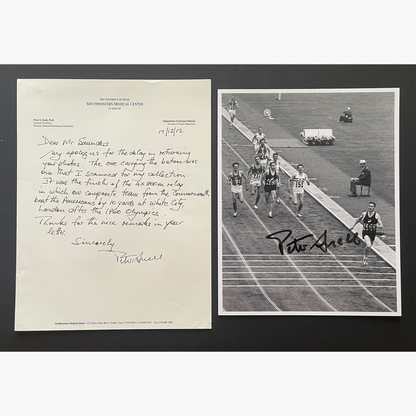 THE UNIVERSITY OF TEXAS
SOUTHWESTERN MEDICAL CENTER
AT DALLAS
Peter G. Snell, Ph.D.
Department of Internal Medicine
17/12/12
Dear Mr Saunders
My apologies for the delay in returning
your photos. The one carrying the baton was
one that I scanned for my collection.
It was the finish of the 4x880m relay
in which our composite team from the Commonwealth
beat the Americans by 10 yards at White City,
London after the 1960 Olympics.
Thanks for the nice remarks in your
letter.
Sincerely
Peter Snell
Peter Snell